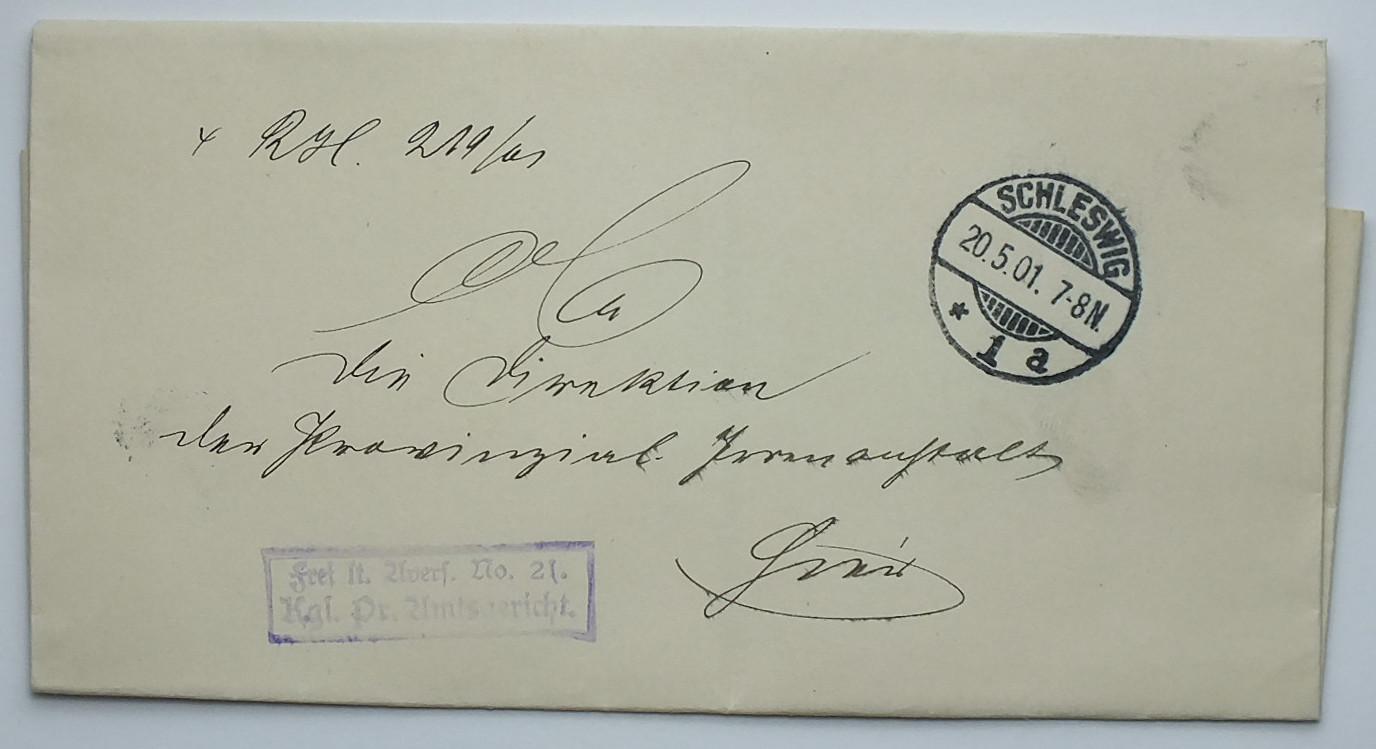 219/01
SCHLESWIG
20.5.01. 7-8N.
* 1 a
An
die Direktion
der Provinzial Irrenanstalt
hier
Frei lt. Avers. No. 21.
Kgl. Pr. Amtsgericht.